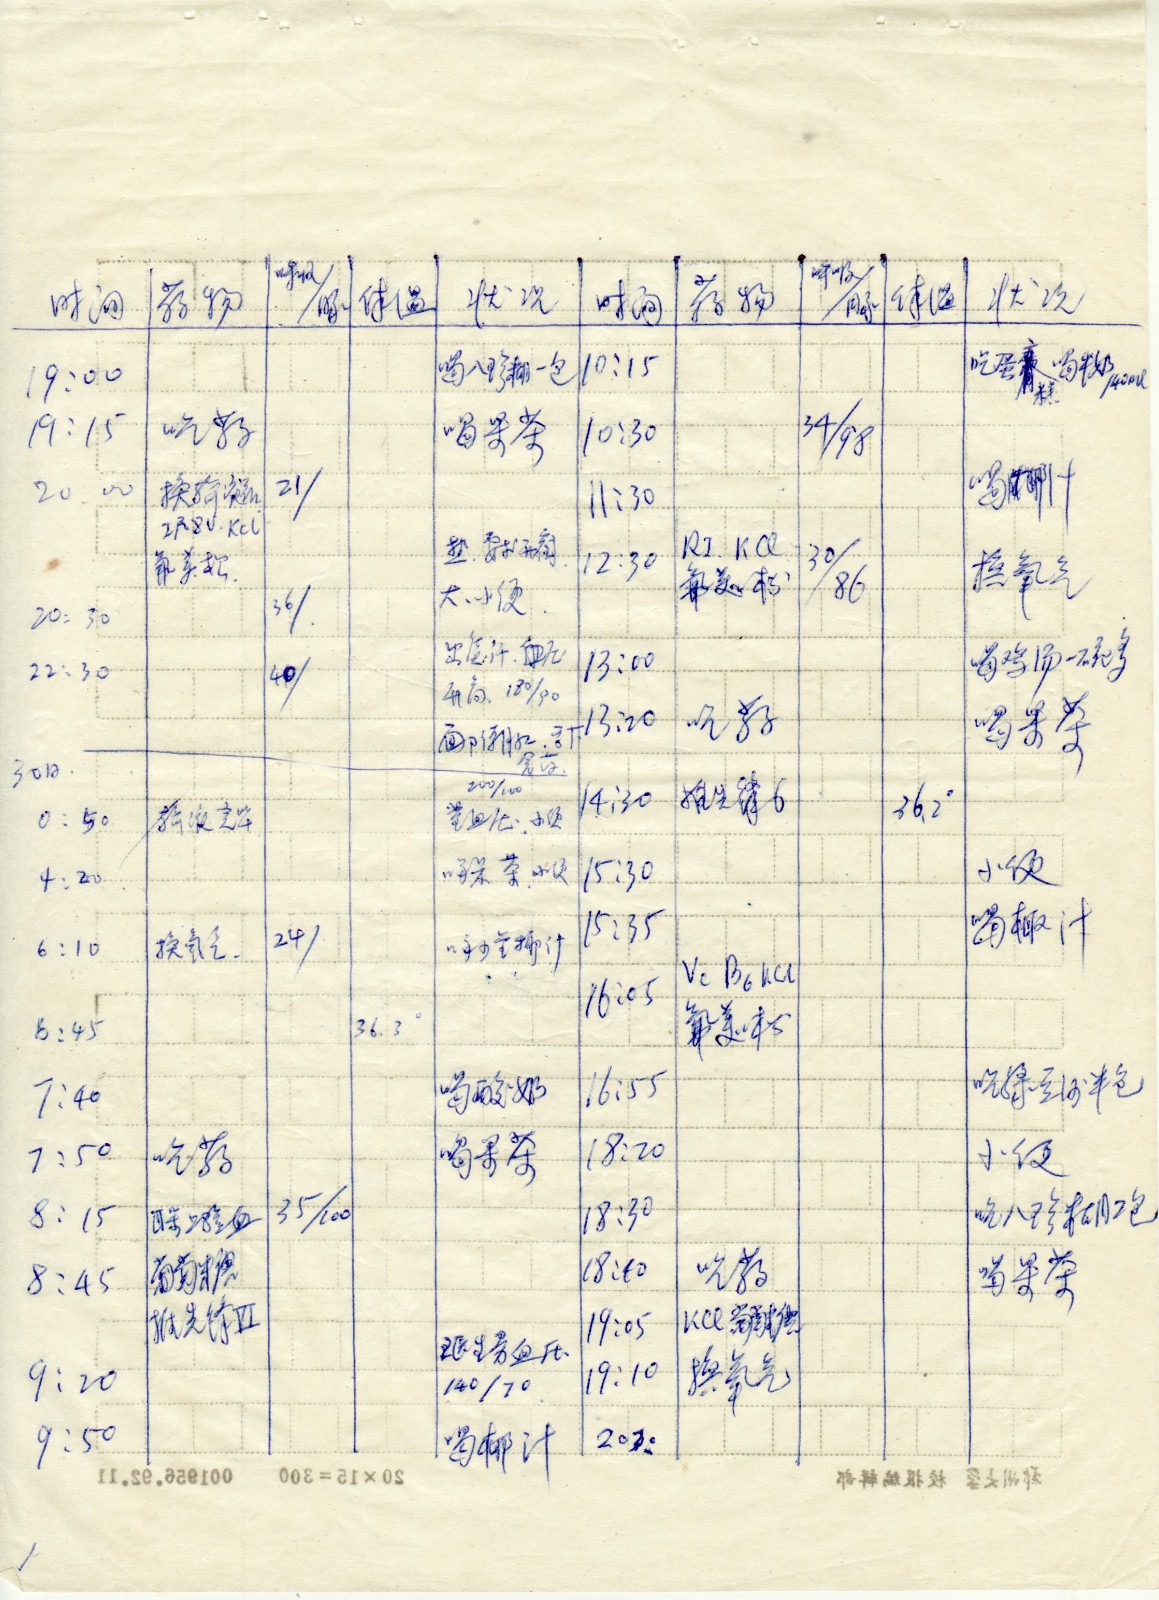 时间 药物 呼吸/脉 体温 状况
19:00 喝八珍糊一包
19:15 吃药 喝果茶
20:00 换输液瓶 21/
KCl
氟美松
大、小便
20:30 36/
22:30 40/ 出虚汗、血压
升高 180/90
30日
200/100
0:50 输液完毕 量血压、小便
4:20 喝果茶、小便
6:10 换氧气 24/ 喝少量椰汁
6:45 36.3°
7:40 喝酸奶
7:50 吃药 喝果茶
8:15 验血 35/100
8:45 葡萄糖
推先锋VI
9:20 医生量血压
140/70
9:50 喝椰汁
时间 药物 呼吸/脉 体温 状况
10:15 吃蛋糕 喝牛奶 140ml
10:30 34/98
11:30 喝椰汁
12:30 RI. KCl 30/86 换氧气
氟美松
13:00 喝鸡汤一碗多
13:20 吃药 喝果茶
14:30 推先锋6 36.2°
15:30 小便
15:35 喝椰汁
16:05 Vc B6 KCl
氟美松
16:55 吃绿豆沙半包
18:20 小便
18:30 吃八珍糊2包
18:40 吃药 喝果茶
19:05 KCl 葡萄糖
19:10 换氧气
郑州大学 校报编辑部 20×15=300 001956.92.11